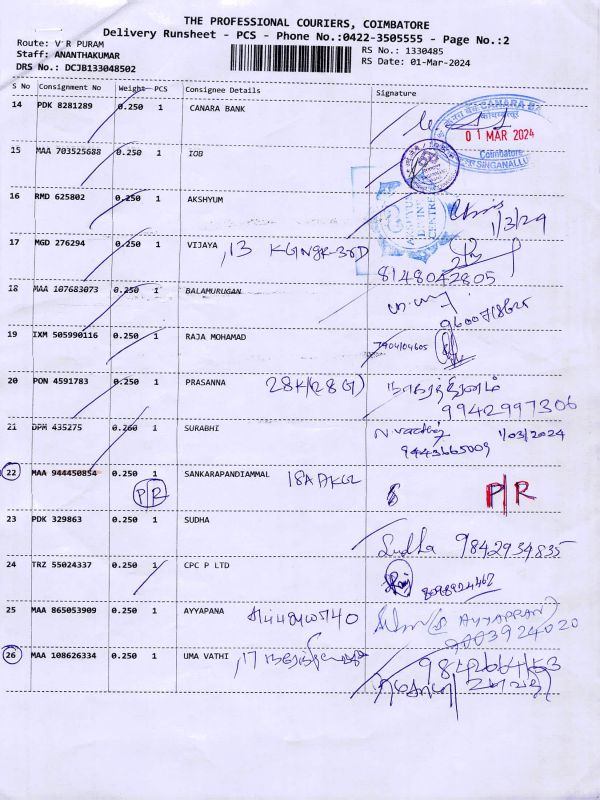 THE PROFESSIONAL COURIERS, COIMBATORE
Delivery Runsheet - PCS - Phone No.:0422-3505555 - Page No.:2
Route: V R PURAM
Staff: ANANTHAKUMAR
DRS No.: DCJB133048502
RS No.: 1330485
RS Date: 01-Mar-2024
S No Consignment No Weight PCS Consignee Details Signature
14 PDK 8281289 0.250 1 CANARA BANK
CANARA
01 MAR 2024
Coimbatore
SINGANALLU
15 MAA 703525688 0.250 1 IOB
16 RMD 625802 0.250 1 AKSHYUM 1/3/24
17 MGD 276294 0.250 1 VIJAYA , 13 KGNGR-3RD 8148042805
18 MAA 107683073 0.250 1 BALAMURUGAN
19 IXM 505990116 0.250 1 RAJA MOHAMAD 7904104605
20 PON 4591783 0.250 1 PRASANNA 28K/(28G) 9942997306
21 DPH 435275 0.260 1 SURABHI 1/03/2024
9443665009
22 MAA 944450854 0.250 1 SANKARAPANDIAMMAL 18A AKGL P/R
P/R
23 PDK 329863 0.250 1 SUDHA Sudha 9842934835
24 TRZ 55024337 0.250 1 CPC P LTD
25 MAA 865053909 0.250 1 AYYAPANA AYYAPPAN
9003924020
26 MAA 108626334 0.250 1 UMA VATHI , 17